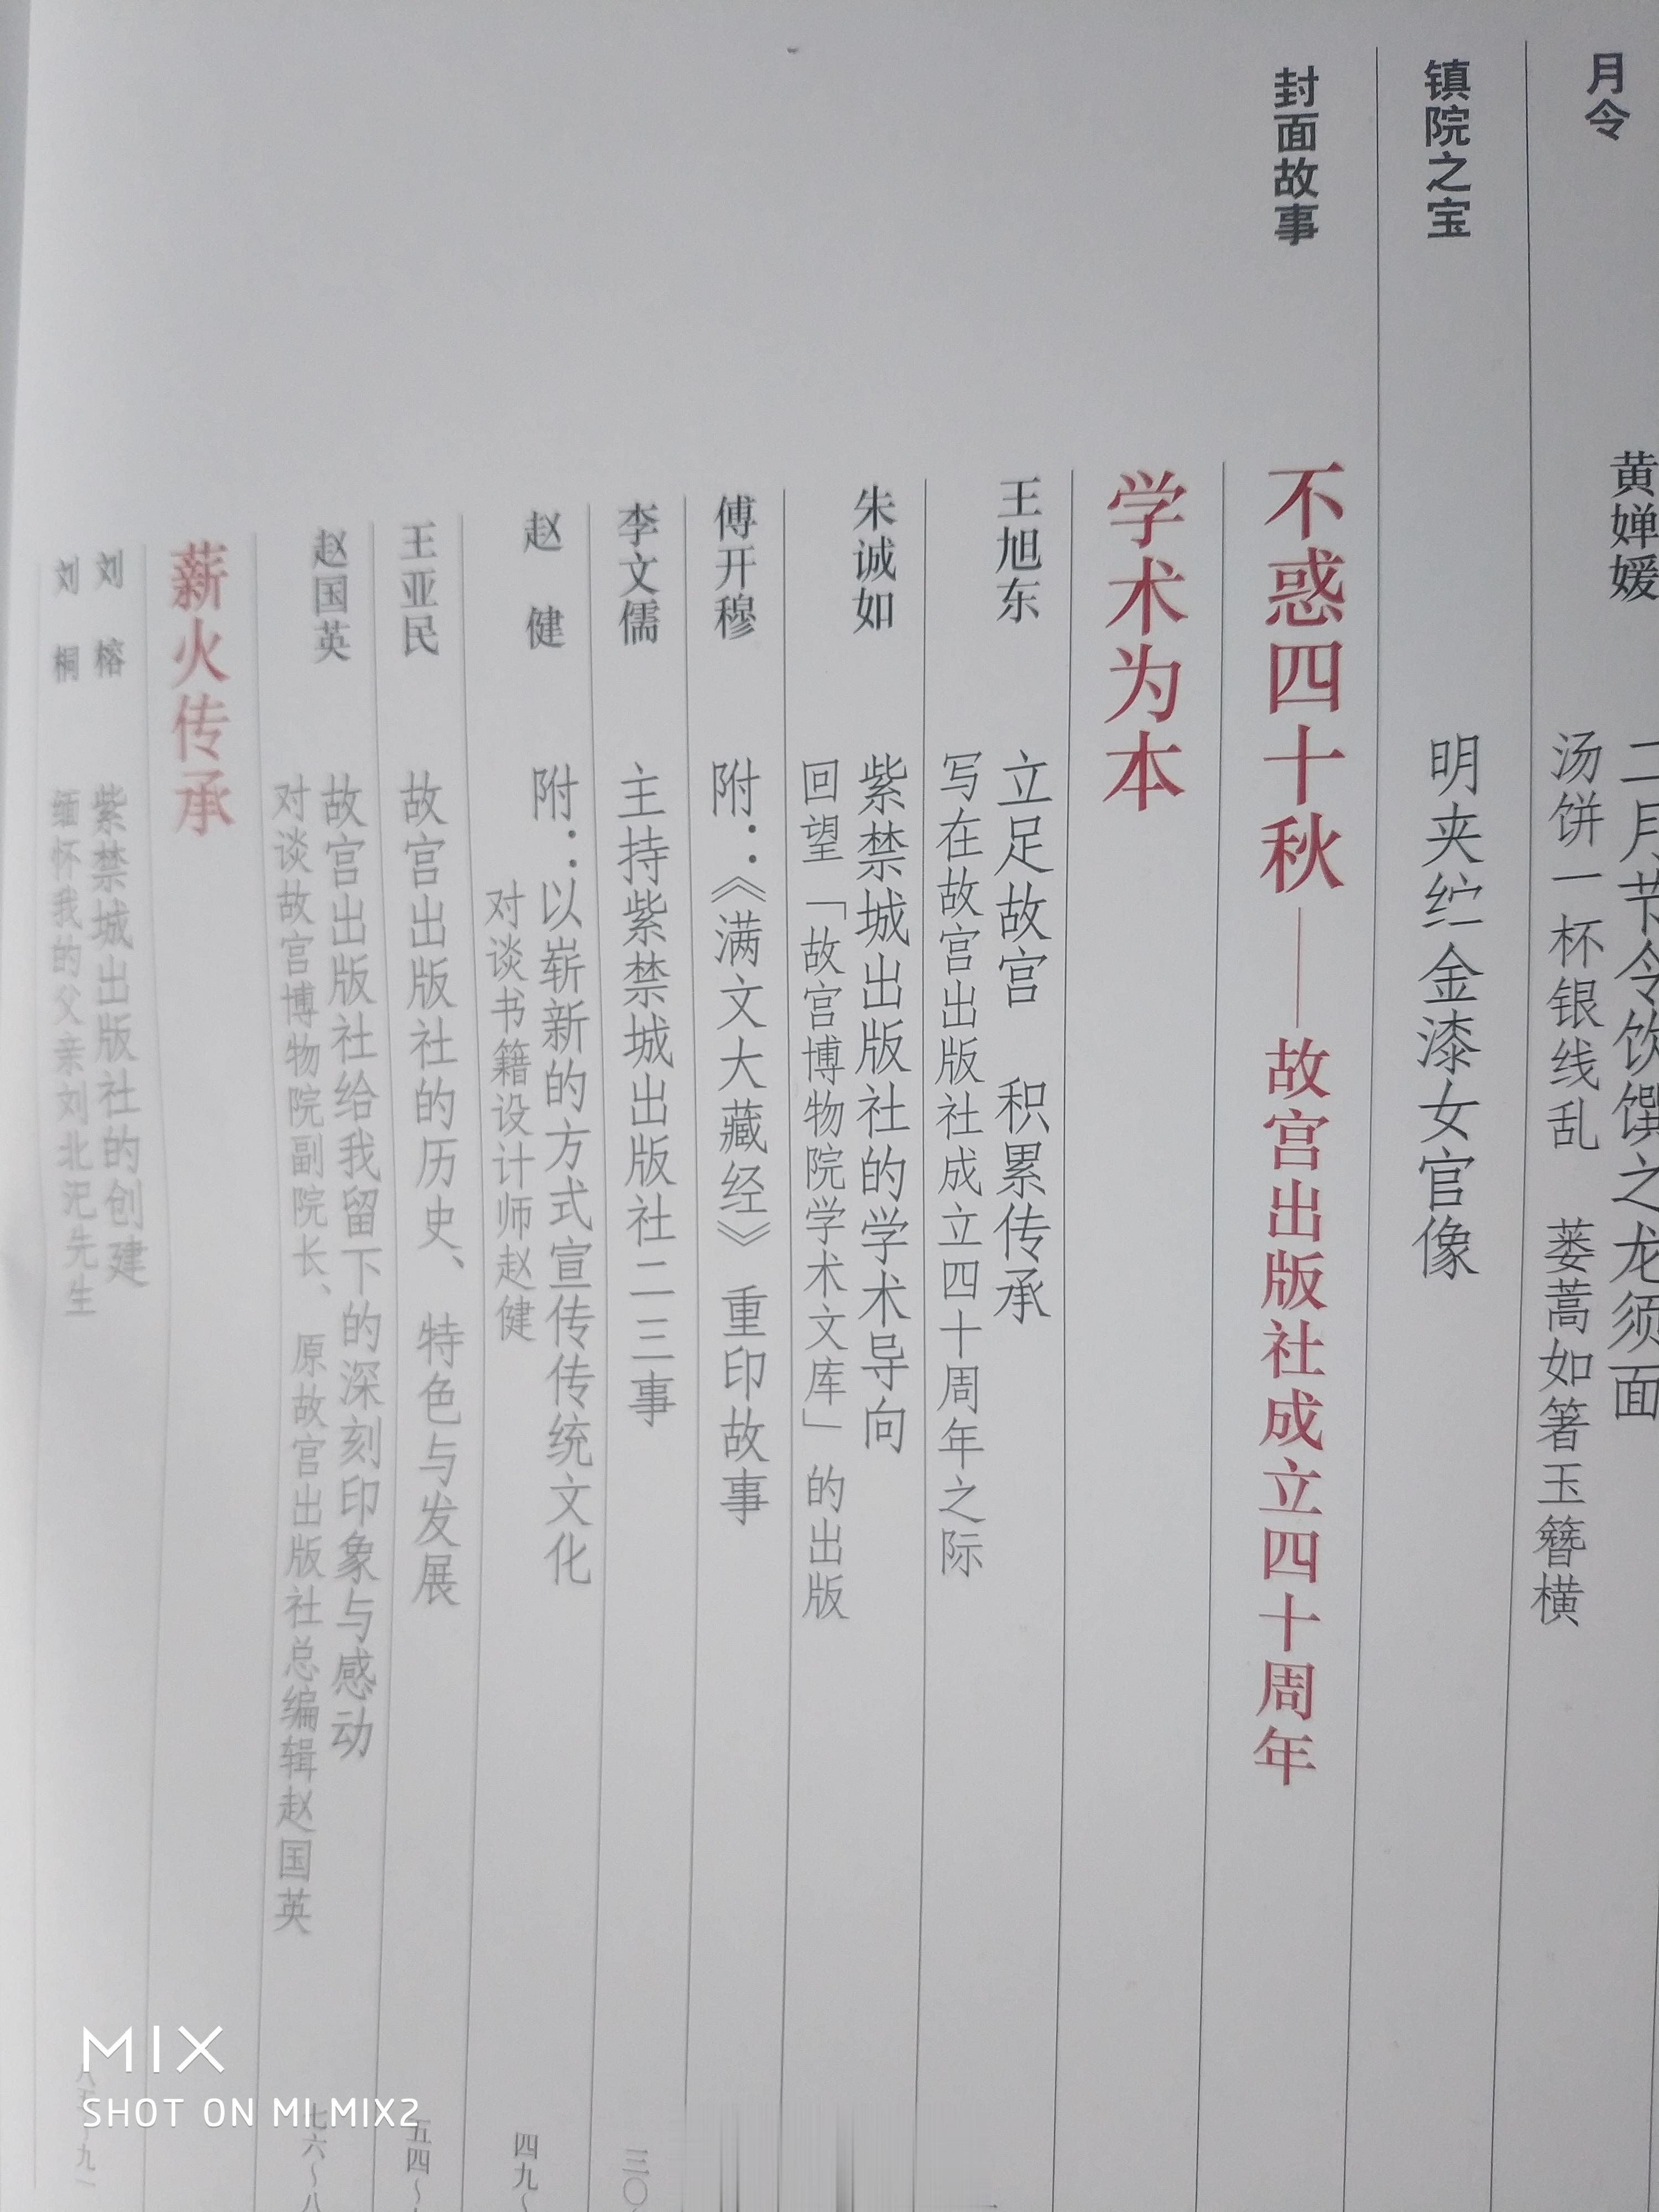 月令
黄婵媛
二月节令饮馔之龙须面
汤饼一杯银线乱 蒌蒿如箸玉簪横
镇院之宝
明夹纻金漆女官像
封面故事
不惑四十秋——故宫出版社成立四十周年
学术为本
王旭东
立足故宫 积累传承
写在故宫出版社成立四十周年之际
朱诚如
紫禁城出版社的学术导向
回望「故宫博物院学术文库」的出版
傅开穆
附：《满文大藏经》重印故事
李文儒
主持紫禁城出版社二三事
三〇
赵 健
附：以崭新的方式宣传传统文化
对谈书籍设计师赵健
四九～
王亚民
故宫出版社的历史、特色与发展
五四～
赵国英
故宫出版社给我留下的深刻印象与感动
对谈故宫博物院副院长、原故宫出版社总编辑赵国英
七六～八
薪火传承
刘 榕
刘 桐
紫禁城出版社的创建
缅怀我的父亲刘北汜先生
MIX
SHOT ON MI MIX2